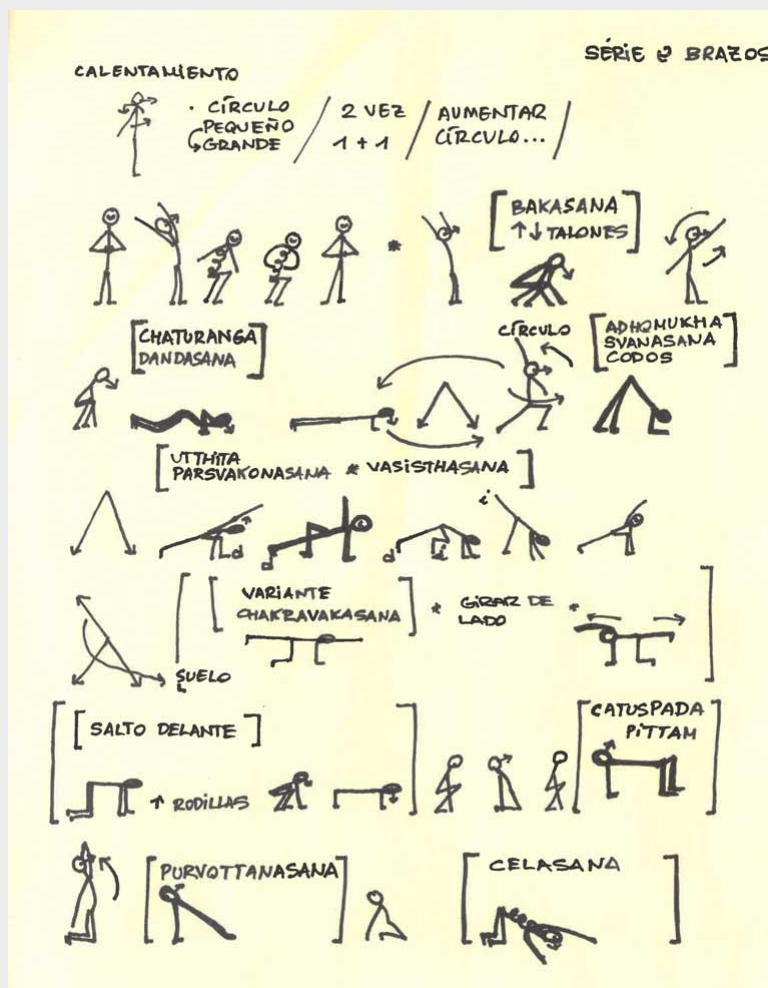 SÉRIE 2 BRAZOS
CALENTAMIENTO
· CÍRCULO
PEQUEÑO
GRANDE
2 VEZ
1 + 1
AUMENTAR
CÍRCULO...
[BAKASANA
↑↓ TALONES]
*
[CHATURANGA
DANDASANA]
CÍRCULO
[ADHOMUKHA
SVANASANA
CODOS]
[UTTHITA
PARSVAKONASANA * VASISTHASANA]
i
d d d i
[VARIANTE
CHAKRAVAKASANA] * GIRAR DE
LADO *
SUELO
[SALTO DELANTE]
↑ RODILLAS
[CATUSPADA
PITTAM]
[PURVOTTANASANA]
[CELASANA]